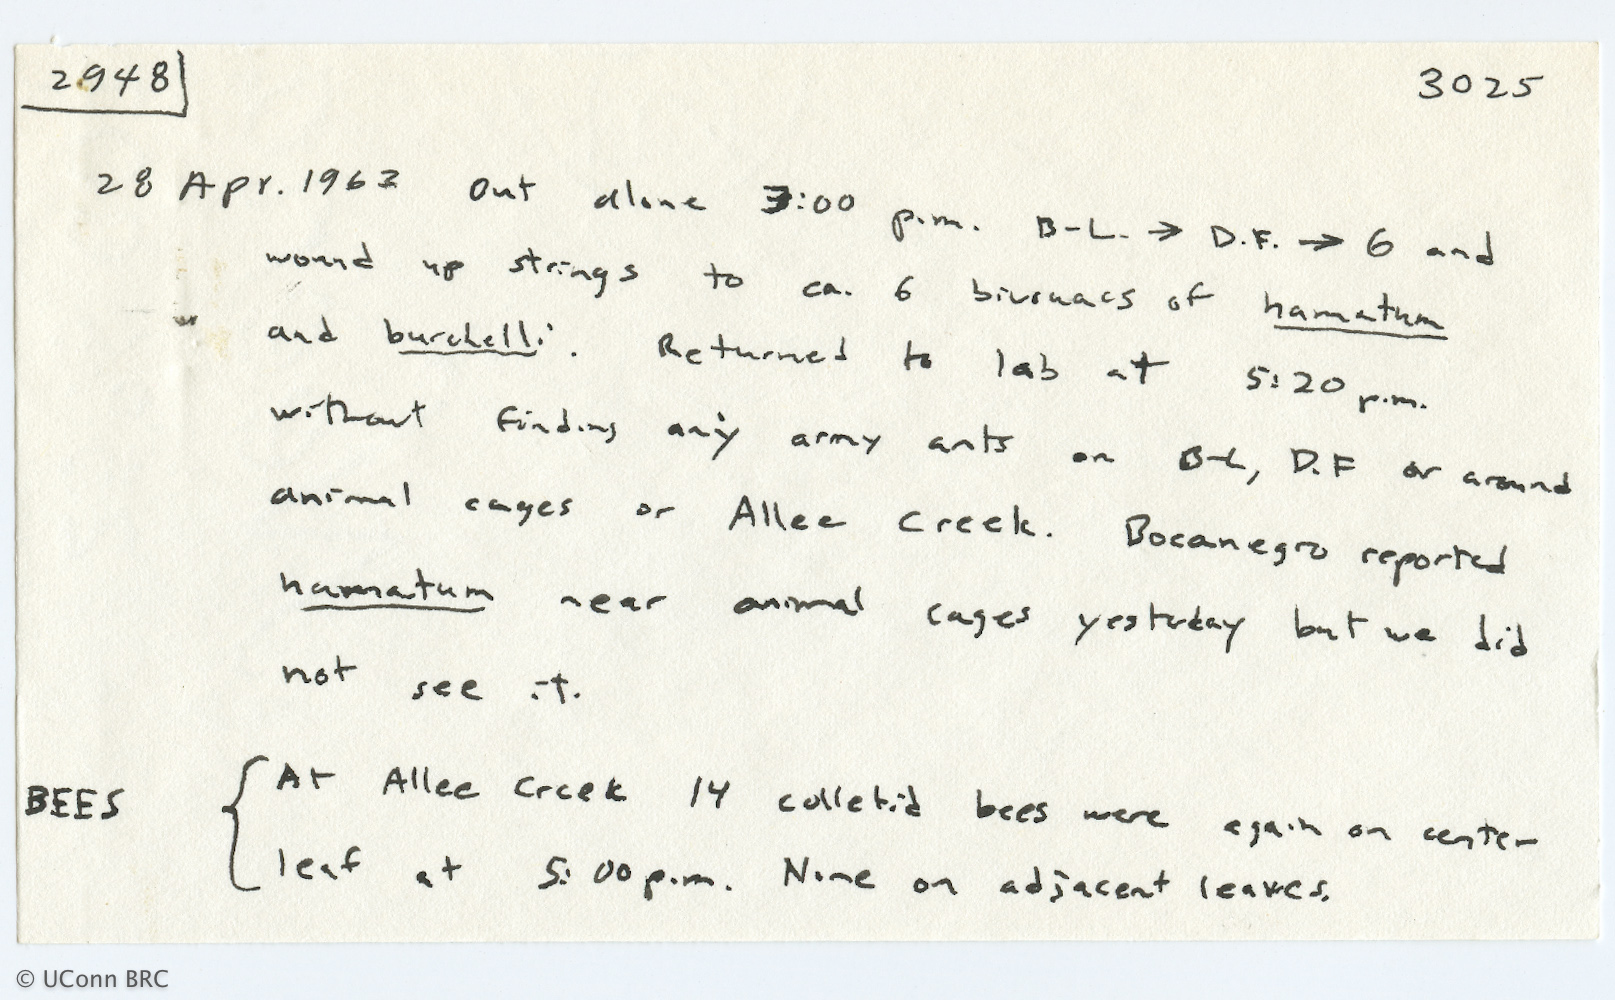 2948
3025
28 Apr. 1963 Out alone 3:00 p.m. B-L. → D.F. → 6 and
wound up strings to ca. 6 bivouacs of hamatum
and burchelli. Returned to lab at 5:20 p.m.
without finding any army ants on B-L, D.F or around
animal cages or Allee Creek. Bocanegro reported
hamatum near animal cages yesterday but we did
not see it.
BEES
At Allee Creek 14 colletid bees were again on center
leaf at 5:00 p.m. None on adjacent leaves.
© UConn BRC